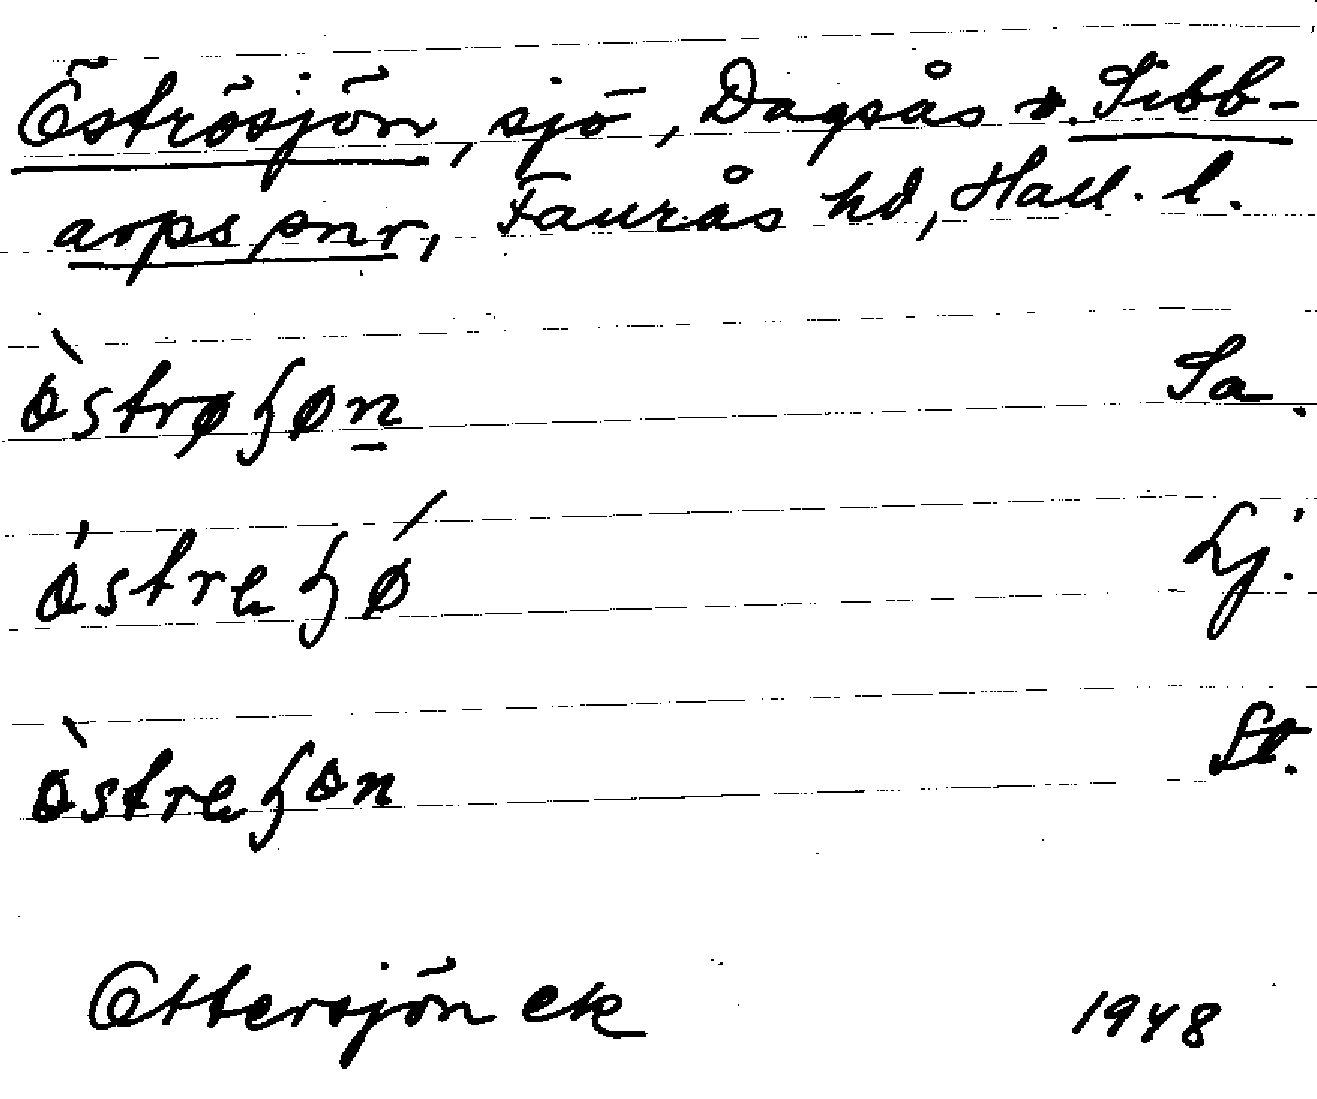 Öströsjön, sjö, Dagsås o. Sibb-
arps snr, Faurås hd, Hall. l.
òstrøʒøn Sa.
óstreʒǿ Lj.
òstreʒon St.
Ottersjön ek 1948